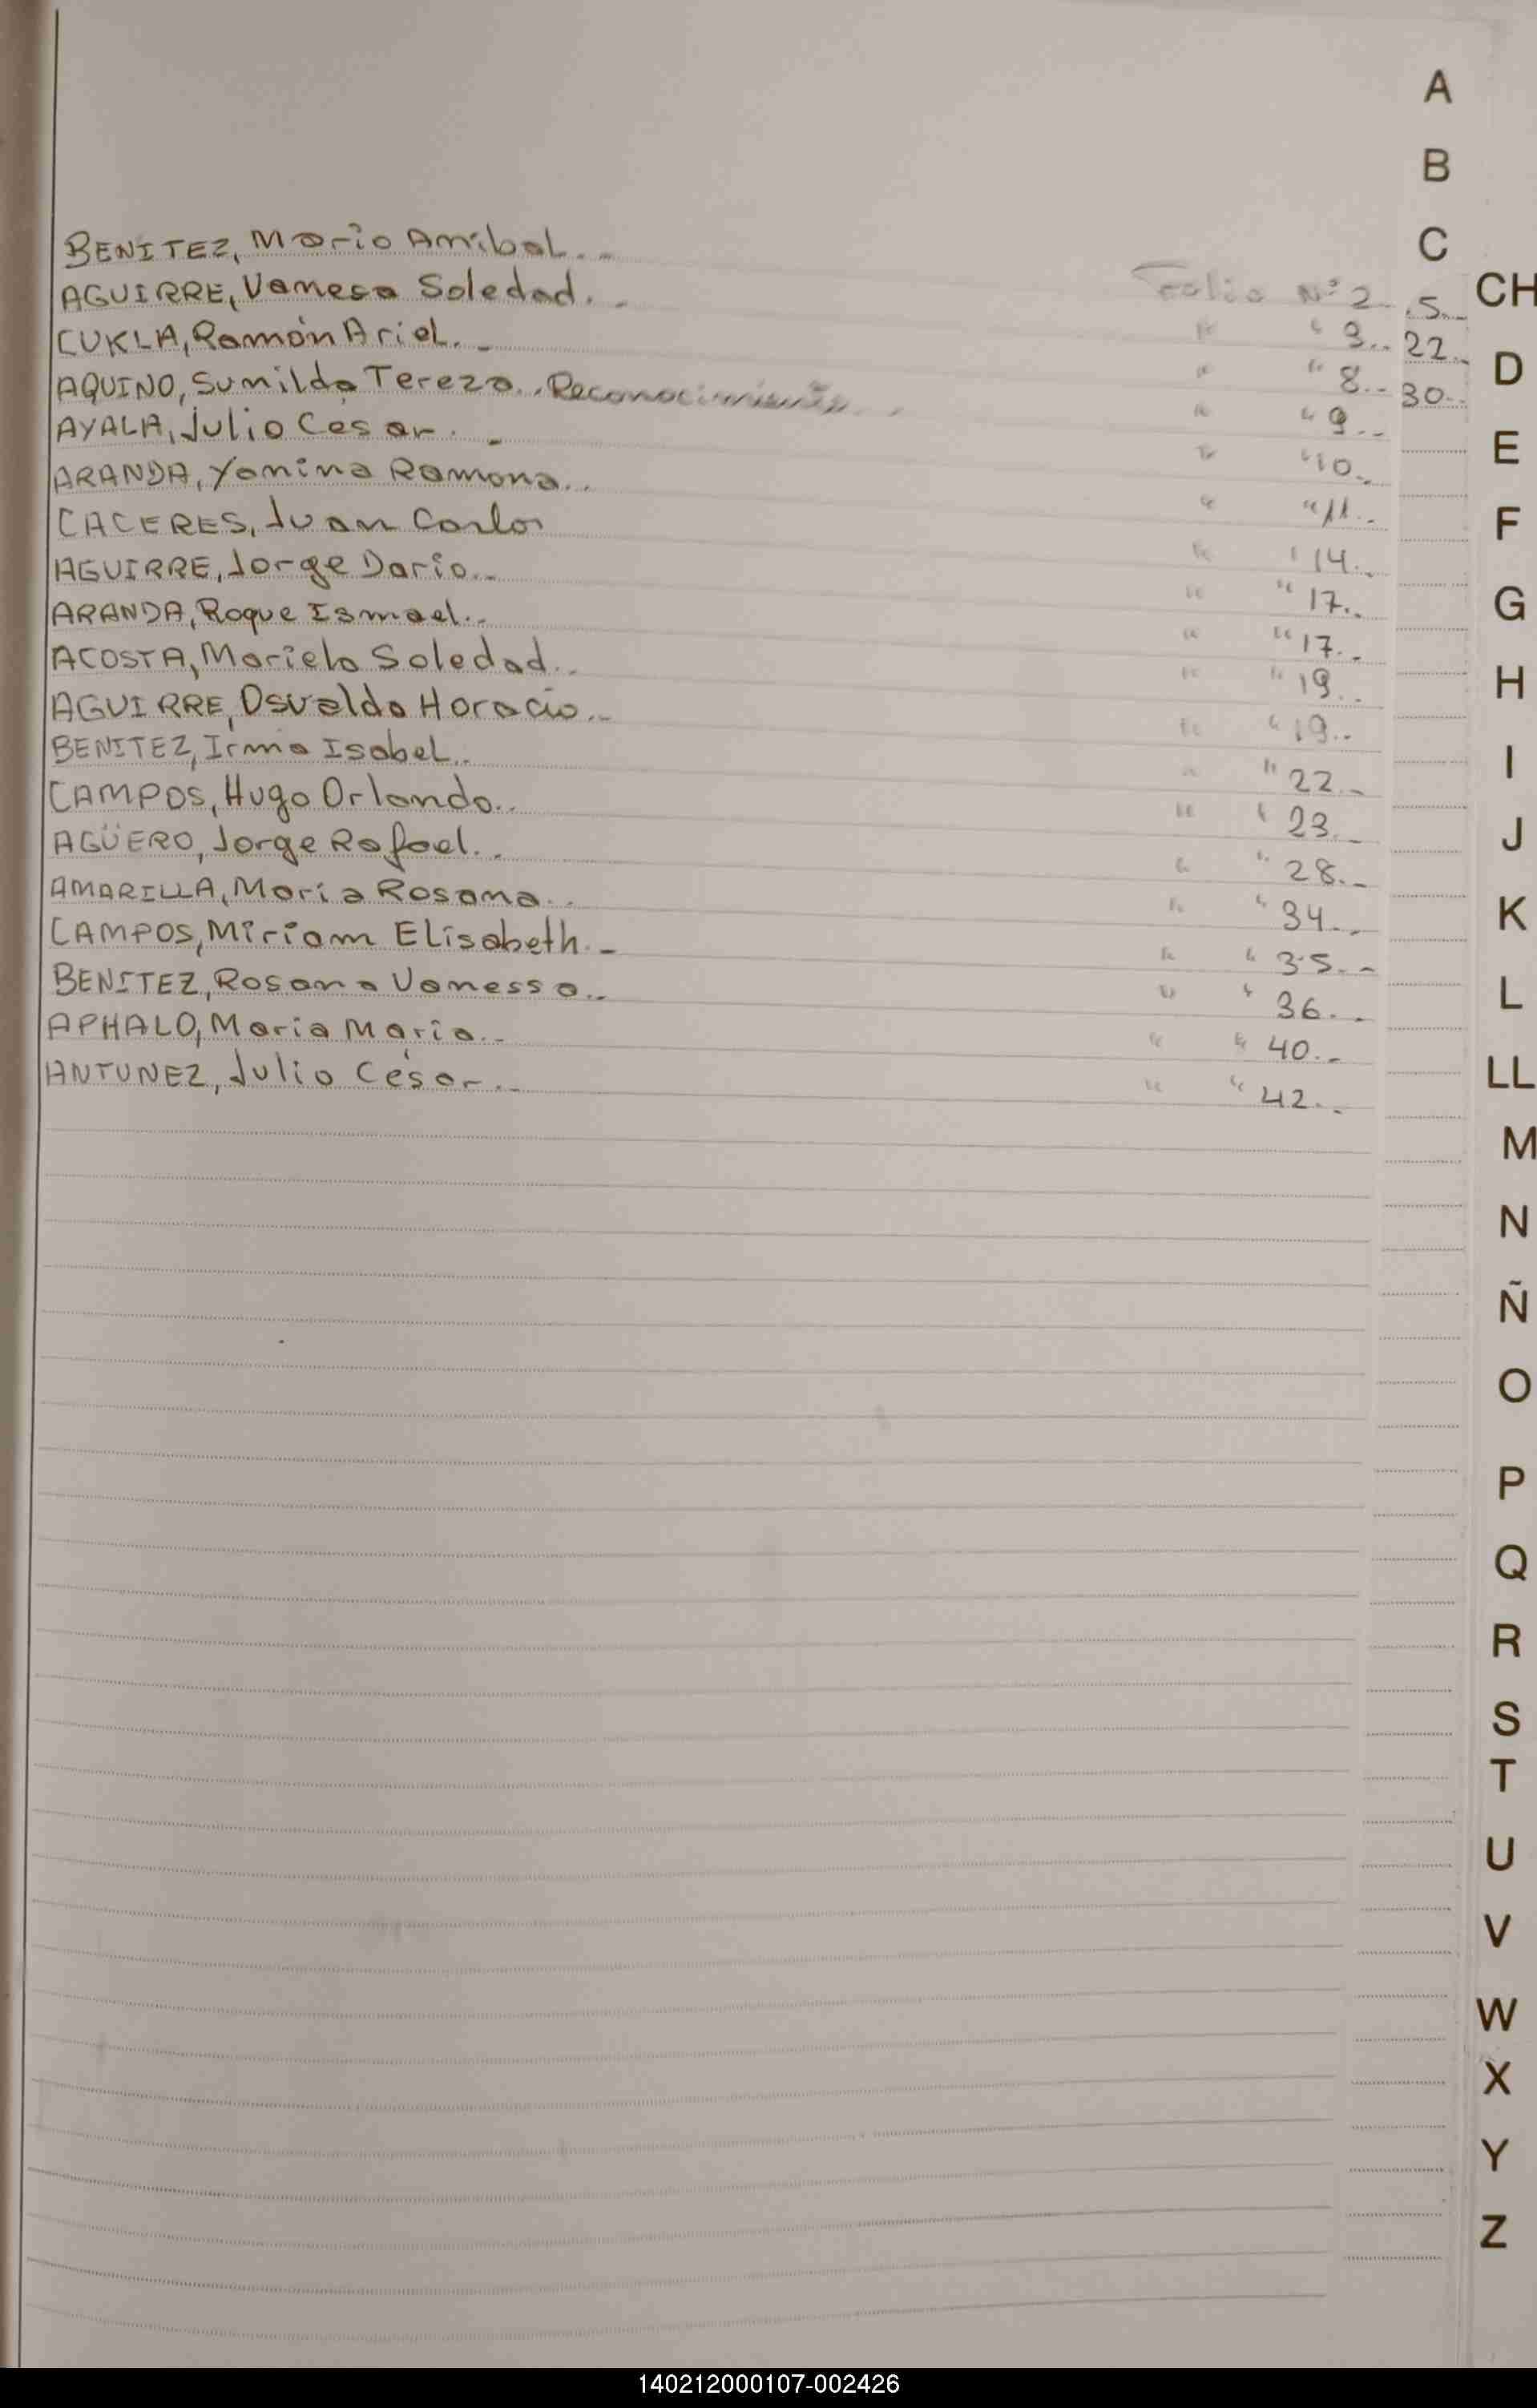 A
B
C
CH
D
E
F
G
H
I
J
K
L
LL
M
N
Ñ
O
P
Q
R
S
T
U
V
W
X
Y
Z
BENITEZ, Mario Anibal.- Folio Nº 2.-
AGUIRRE, Vanesa Soledad.- " " 3.-
CUKLA, Ramón Ariel.- " " 8.-
AQUINO, Sunilda Tereza.. Reconocimiento.- " " 9.-
AYALA, Julio Cesar.- " " 10.-
ARANDA, Yanina Ramona.- " " 11.-
CACERES, Juan Carlos " " 14.-
AGUIRRE, Jorge Dario.- " " 17.-
ARANDA, Roque Ismael.- " " 17.-
ACOSTA, Mariela Soledad.- " " 19.-
AGUIRRE, Osvaldo Horacio.- " " 19.-
BENITEZ, Irma Isabel.- " " 22.-
CAMPOS, Hugo Orlando.- " " 23.-
AGÜERO, Jorge Rafael.- " " 28.-
AMARILLA, Maria Rosana.- " " 34.-
CAMPOS, Miriam Elisabeth.- " " 35.-
BENITEZ, Rosana Vanessa.- " " 36.-
APHALO, Maria Maria.- " " 40.-
ANTUNEZ, Julio César.- " " 42.-
5.-
22.-
30.-
140212000107-002426